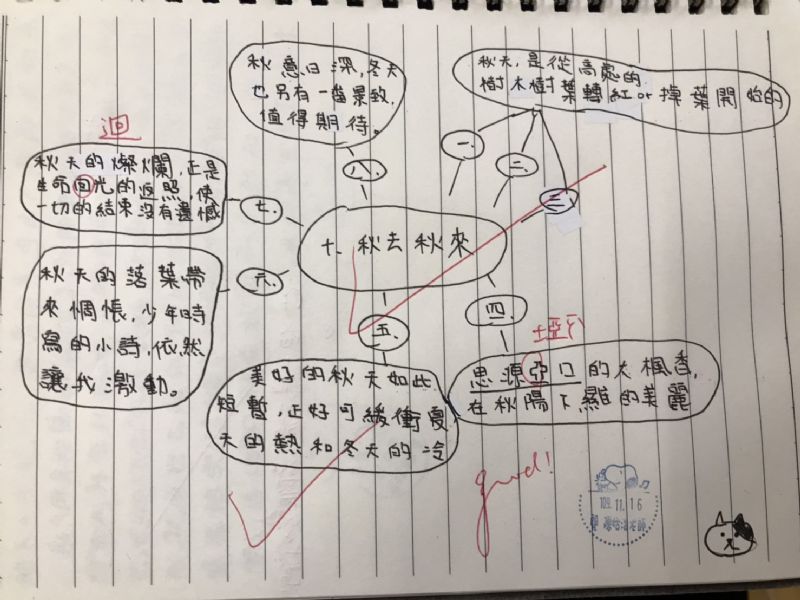 秋意日深,冬天
也另有一番景致,
值得期待。
秋天,是從高處的
樹木樹葉轉紅or掉葉開始的
迴
秋天的燦爛,正是
生命回光的返照,使
一切的結束沒有遺憾
一、
二、
三、
八、
七、
十、秋去秋來
六、
秋天的落葉帶
來惆悵,少年時
寫的小詩,依然
讓我激動。
四、
五、
埡
美好的秋天如此
短暫,正好可緩衝夏
天的熱和冬天的冷
思源亞口的大楓香,
在秋陽下
的美麗
good!
109.11.16